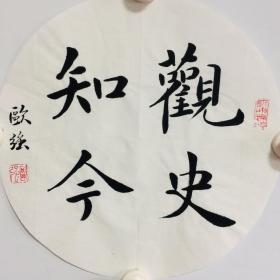 觀史
知今
歐強